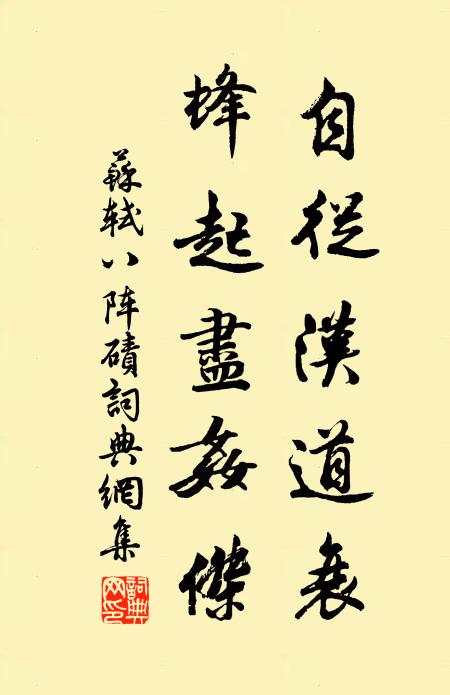 自從漢道衰
蜂起盡姦傑
蘇軾八阵磧詞典網集
詞典網印